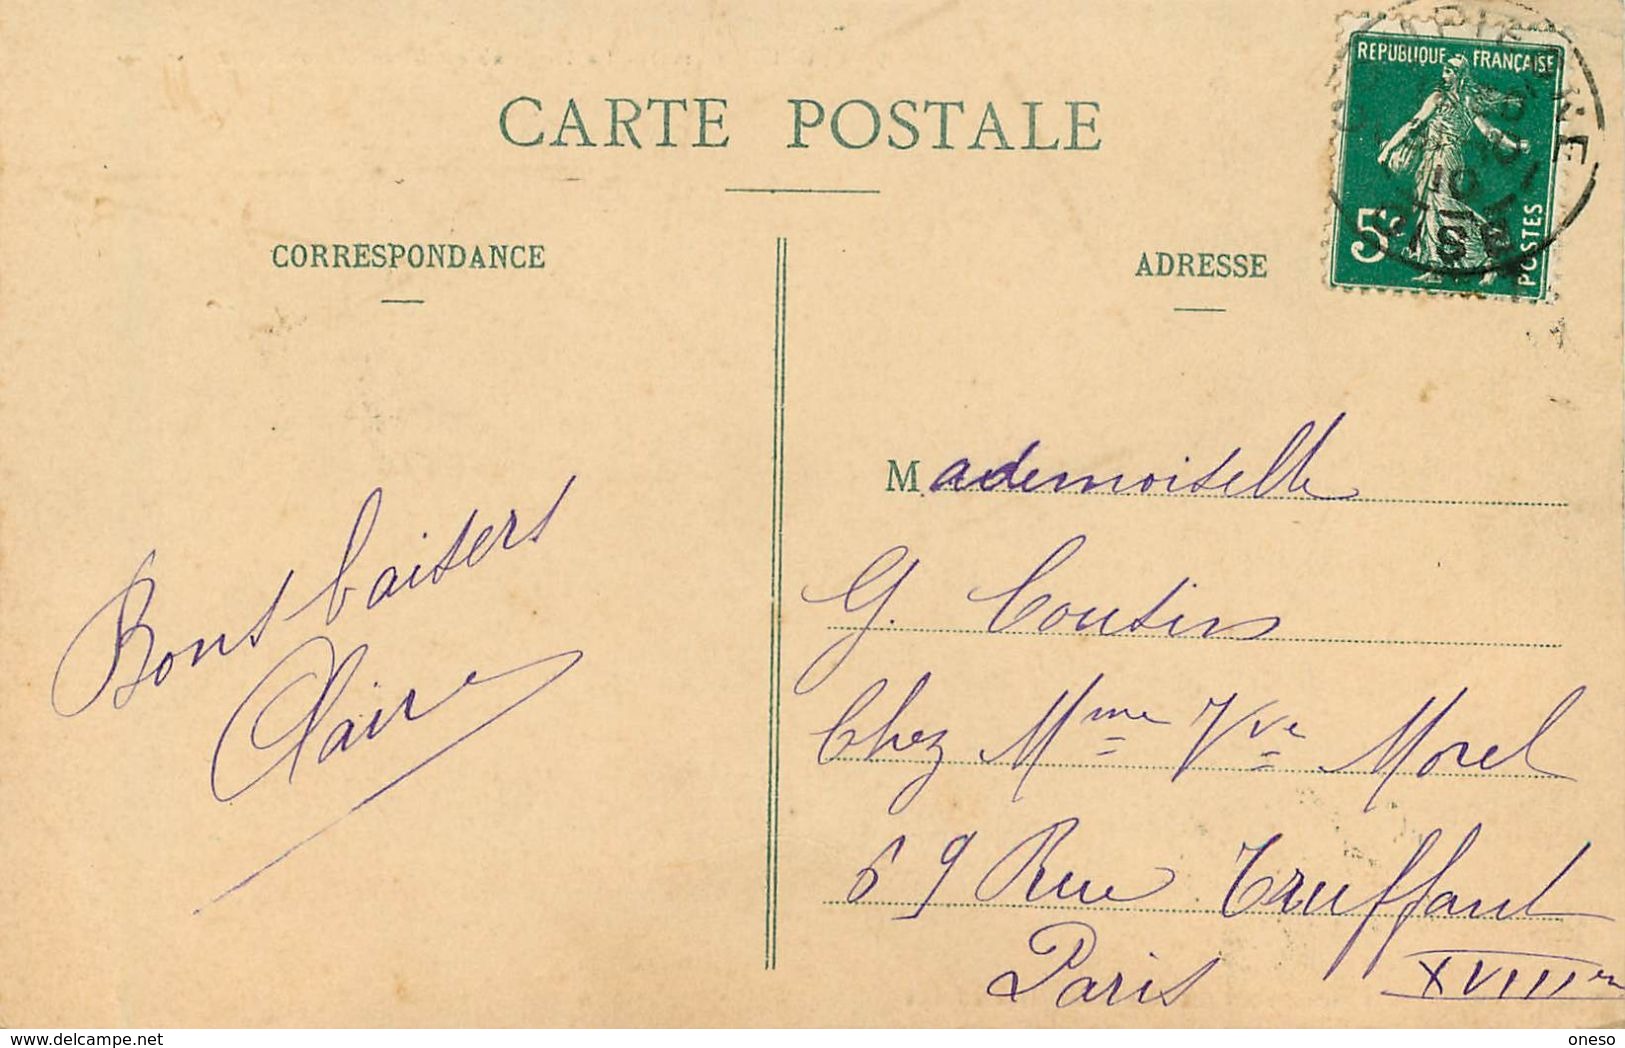 CARTE POSTALE
REPUBLIQUE FRANÇAISE
5c
POSTES
OISE
CORRESPONDANCE
ADRESSE
Bons baisers
Claire
Mademoiselle
G. Coutin
Chez Mme Vve Morel
69 Rue Truffaut
Paris XVIIIe
delcampe.net
oneso